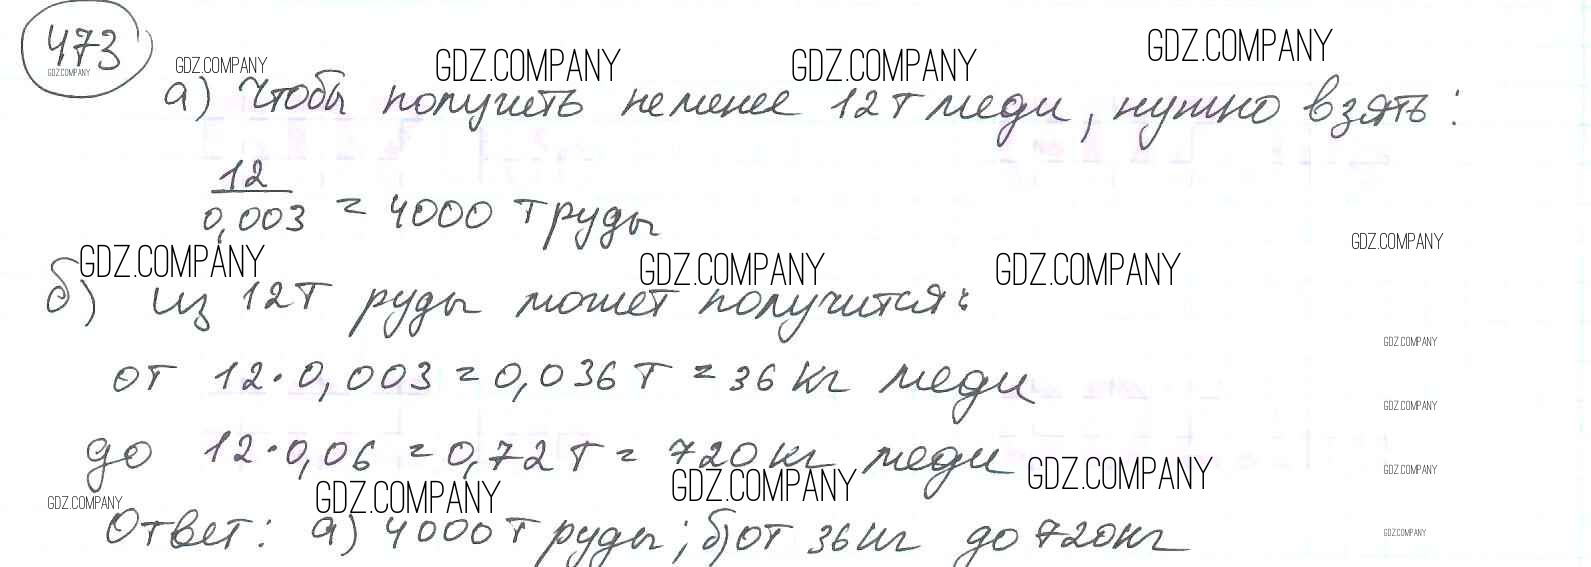 473
GDZ.COMPANY GDZ.COMPANY GDZ.COMPANY GDZ.COMPANY GDZ.COMPANY
а) Чтобы получить не менее 12 т меди, нужно взять:
12
0,003 = 4000 т руды
GDZ.COMPANY GDZ.COMPANY GDZ.COMPANY GDZ.COMPANY
б) из 12 т руды может получится:
GDZ.COMPANY
от 12·0,003 = 0,036 т = 36 кг меди
GDZ.COMPANY
до 12·0,06 = 0,72 т = 720 кг меди
GDZ.COMPANY GDZ.COMPANY GDZ.COMPANY GDZ.COMPANY GDZ.COMPANY
Ответ: а) 4000 т руды; б) от 36 кг до 720 кг
GDZ.COMPANY